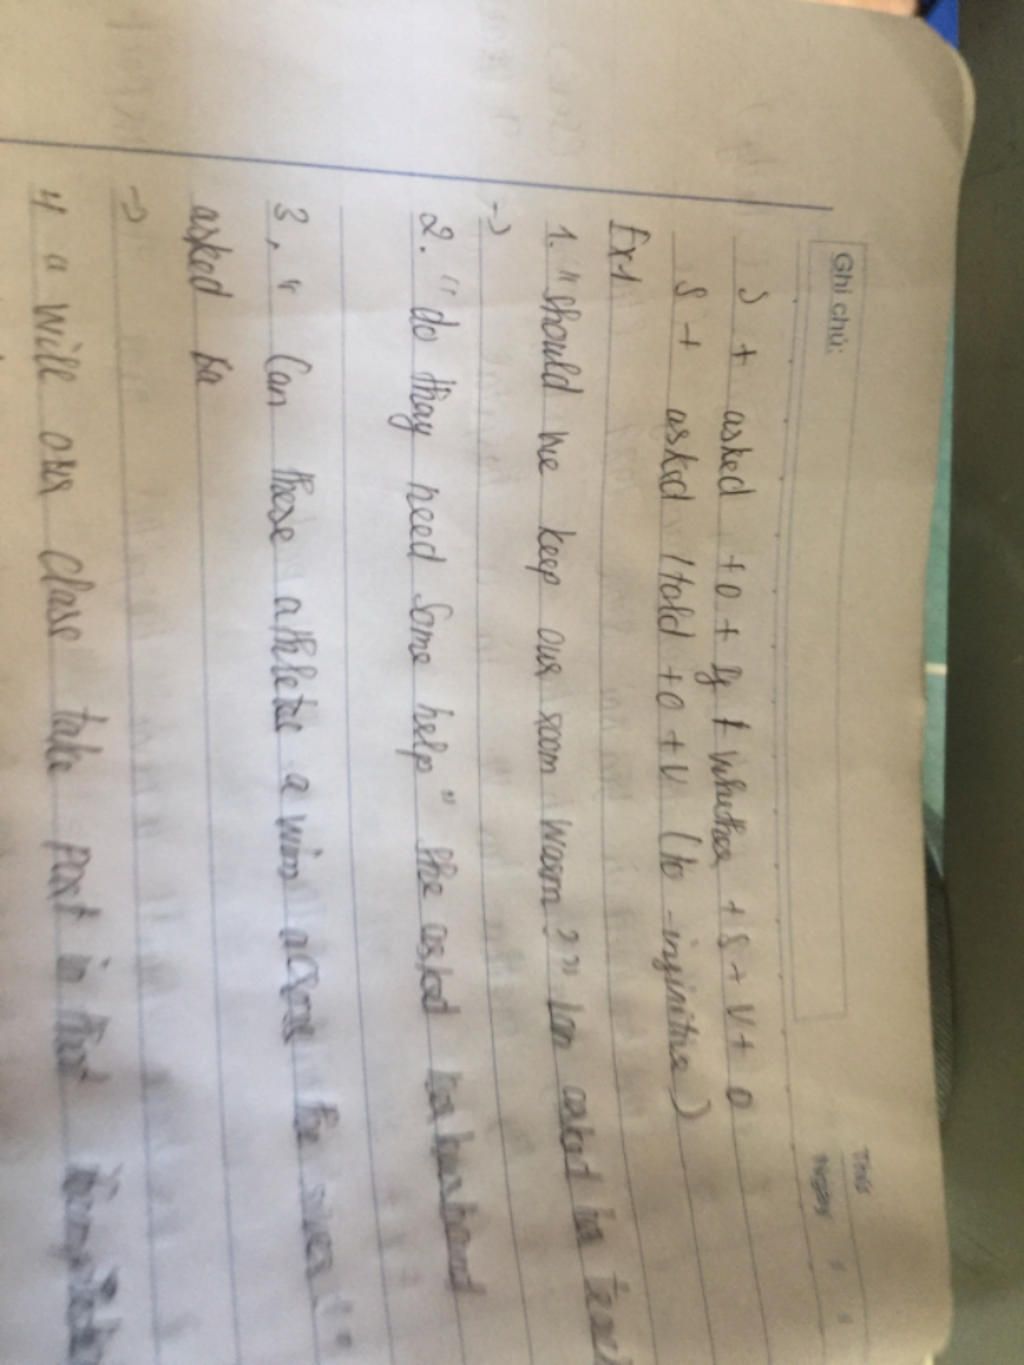 Ghi chú:
Thứ
Ngày
S + asked + O + if / whether + S + V + O
S + asked / told + O + V (to - infinitive)
Ex1
1. "should we keep our room warm?" Lan asked her
→
2. "do thay need some help" she asked her husband
3, " Can these athletic a wim across the river"
asked
→
4 a will our clase take part in that